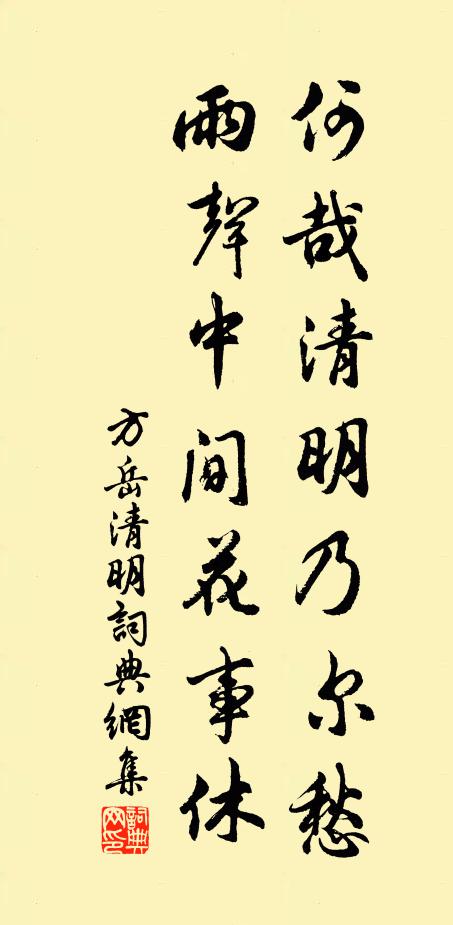 何哉清明乃尔愁
雨聲中间花事休
方岳清明詞典網集
詞典网印